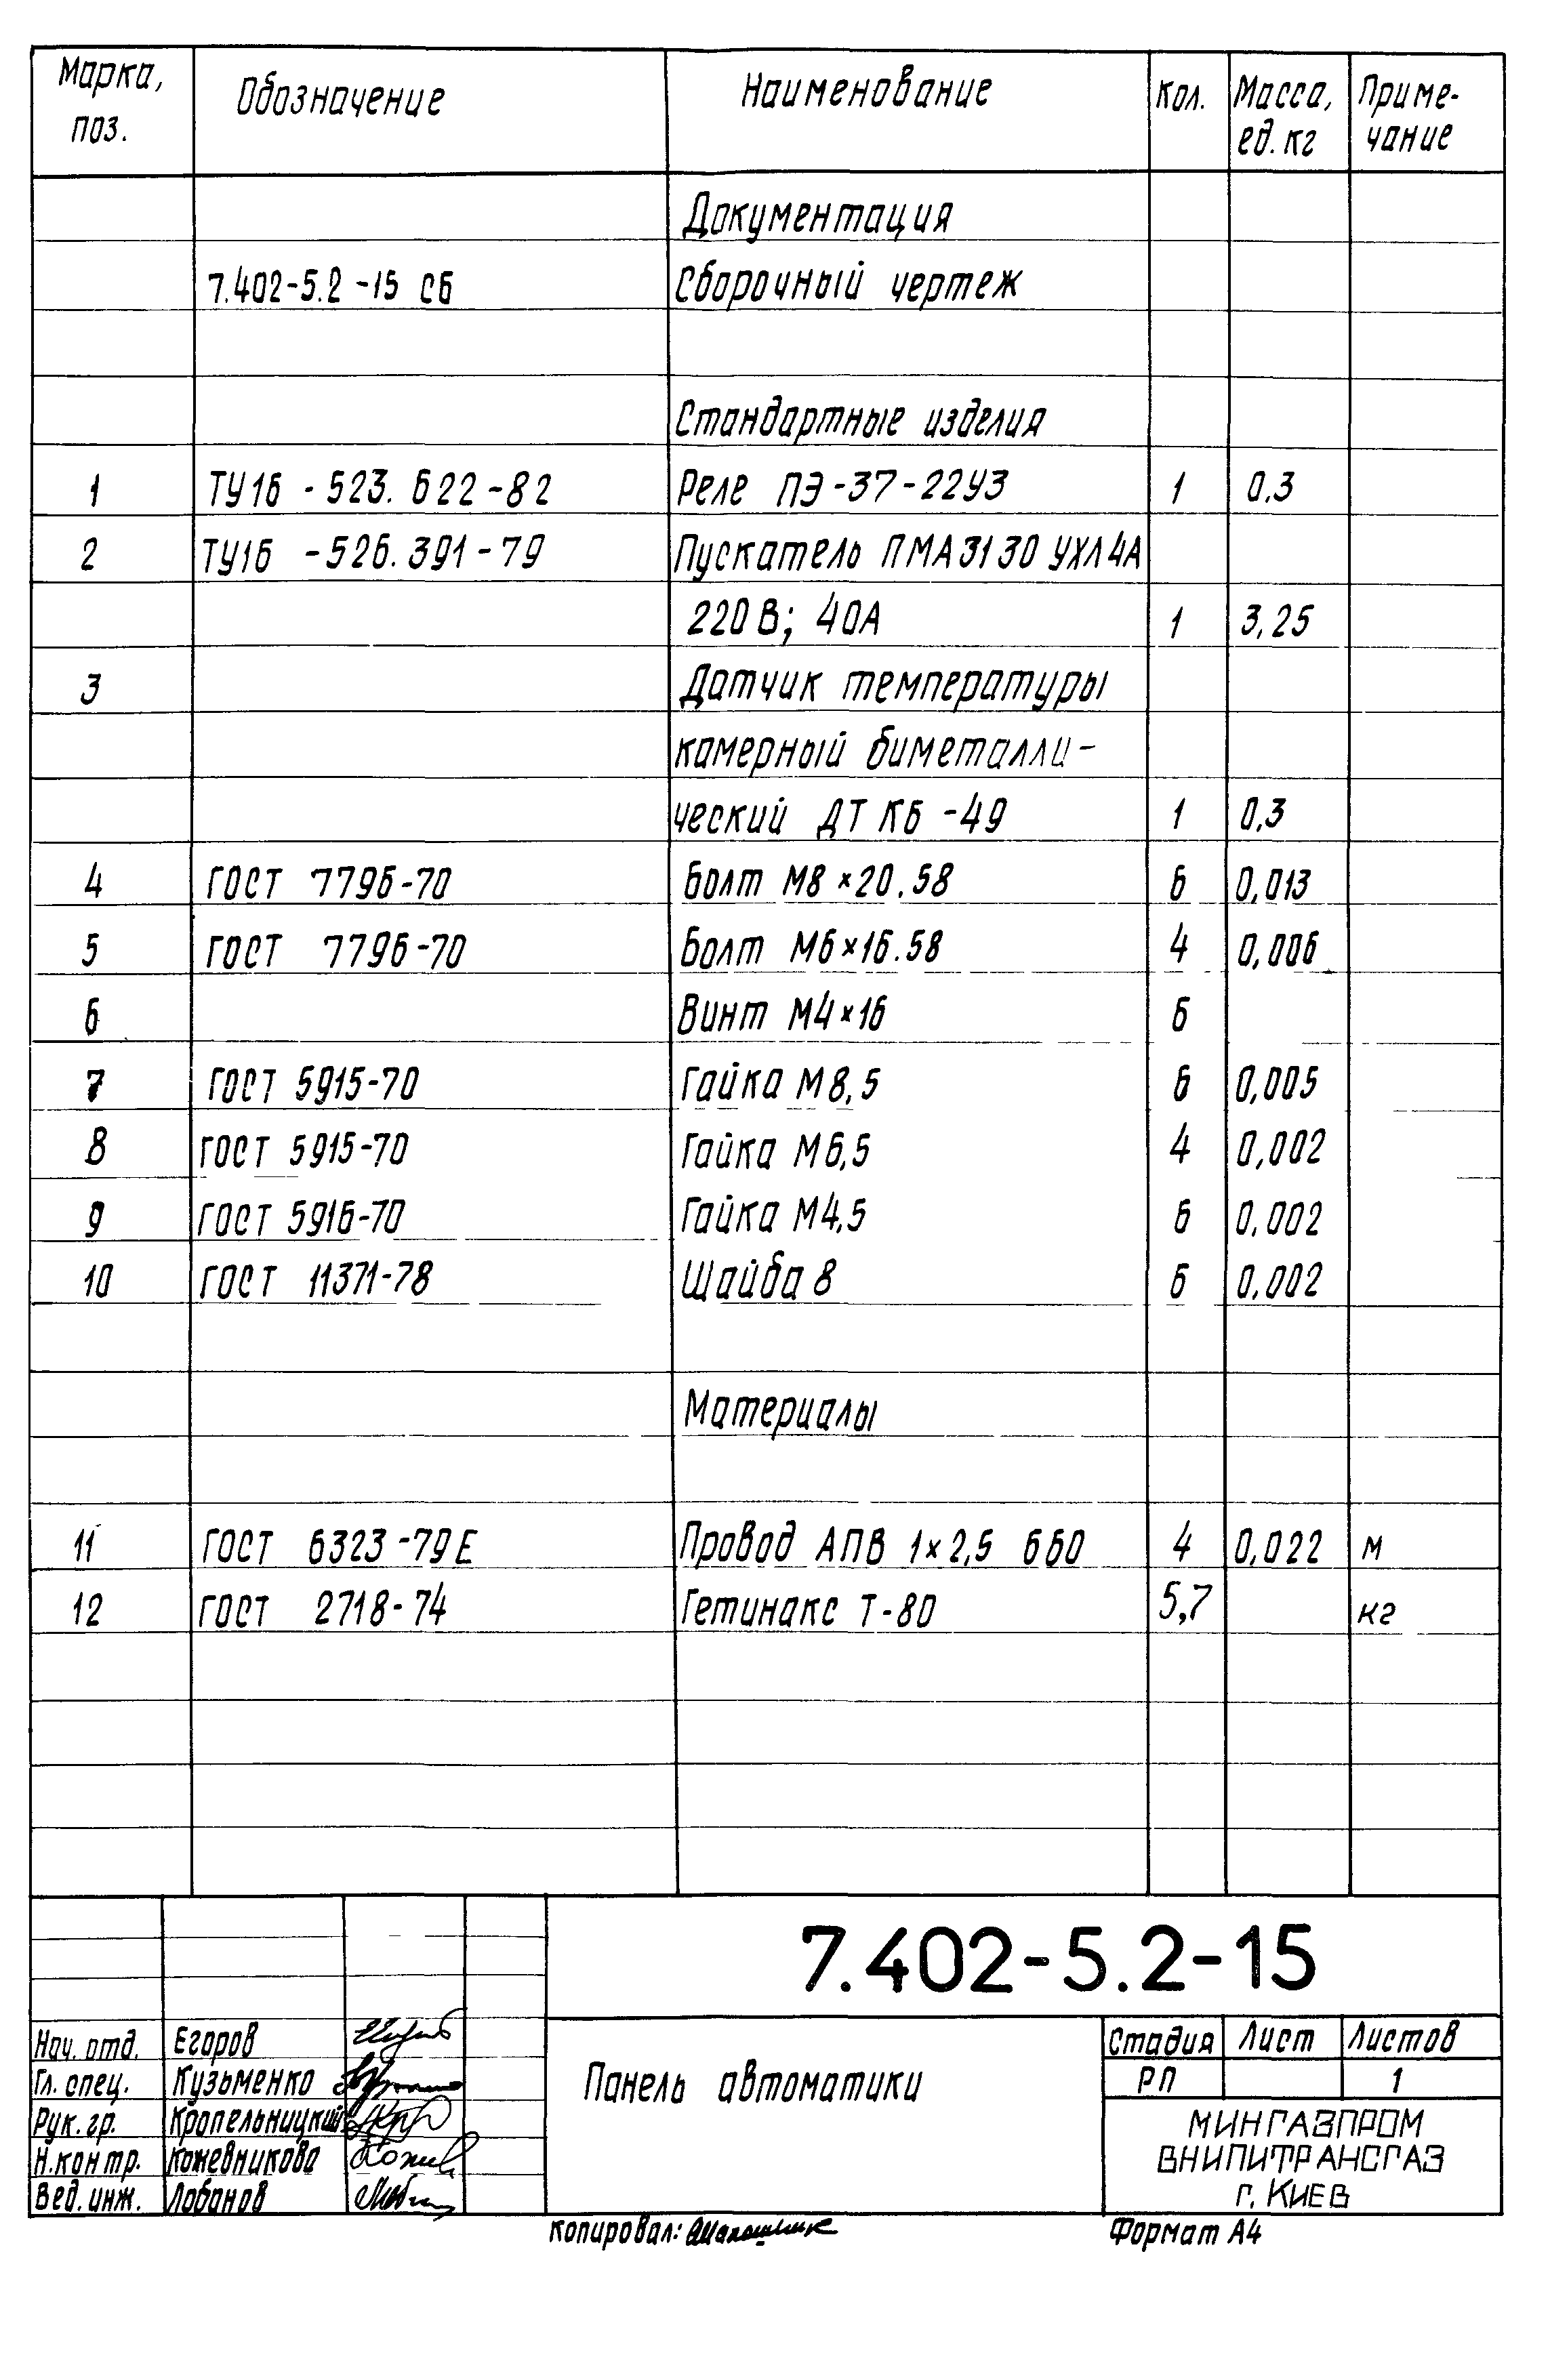 Марка, поз. Обозначение Наименование Кол. Масса, ед. кг Приме- чание
Документация
7.402-5.2-15 СБ Сборочный чертеж
Стандартные изделия
1 ТУ16-523.622-82 Реле ПЭ-37-22У3 1 0.3
2 ТУ16-526.391-79 Пускатель ПМА3130 УХЛ4А
220В; 40А 1 3,25
3 Датчик температуры
камерный биметалли-
ческий ДТКБ-49 1 0,3
4 ГОСТ 7796-70 Болт М8×20.58 6 0,013
5 ГОСТ 7796-70 Болт М6×16.58 4 0,006
6 Винт М4×16 6
7 ГОСТ 5915-70 Гайка М8,5 6 0,005
8 ГОСТ 5915-70 Гайка М6,5 4 0,002
9 ГОСТ 5916-70 Гайка М4,5 6 0,002
10 ГОСТ 11371-78 Шайба 8 6 0,002
Материалы
11 ГОСТ 6323-79Е Провод АПВ 1×2,5 660 4 0,022 м
12 ГОСТ 2718-74 Гетинакс Т-80 5,7 кг
7.402-5.2-15
Нач. отд. Егоров
Гл. спец. Кузьменко
Рук. гр. Кропельницкий
Н.контр. Кожевникова
Вед. инж. Лобанов
Панель автоматики
Стадия Лист Листов
РП 1
МИНГАЗПРОМ
ВНИПИТРАНСГАЗ
г. КИЕВ
Копировал:
Формат А4